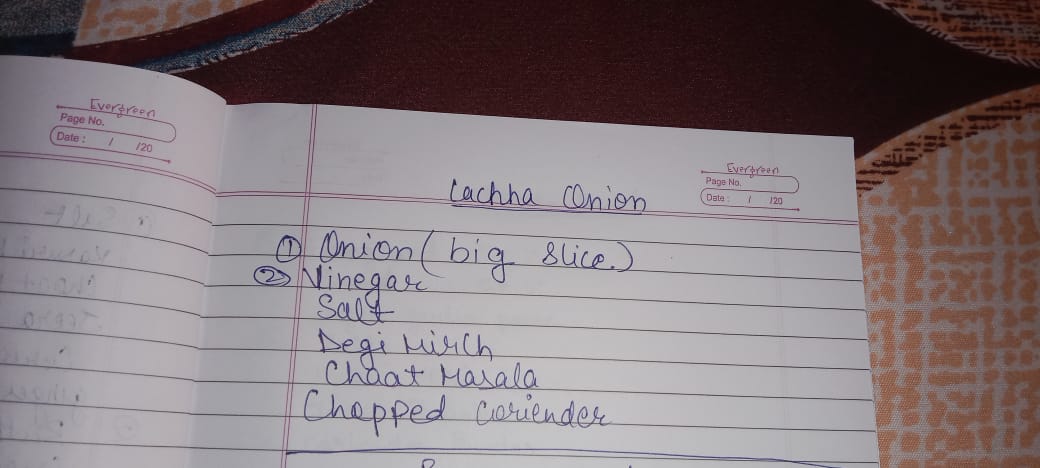 Evergreen
Page No.
Date : / /20
Evergreen
Page No.
Date : / /20
Lachha Onion
① Onion (big slice.)
② Vinegar
Salt
Degi Mirch
Chaat Masala
Chopped Coriender